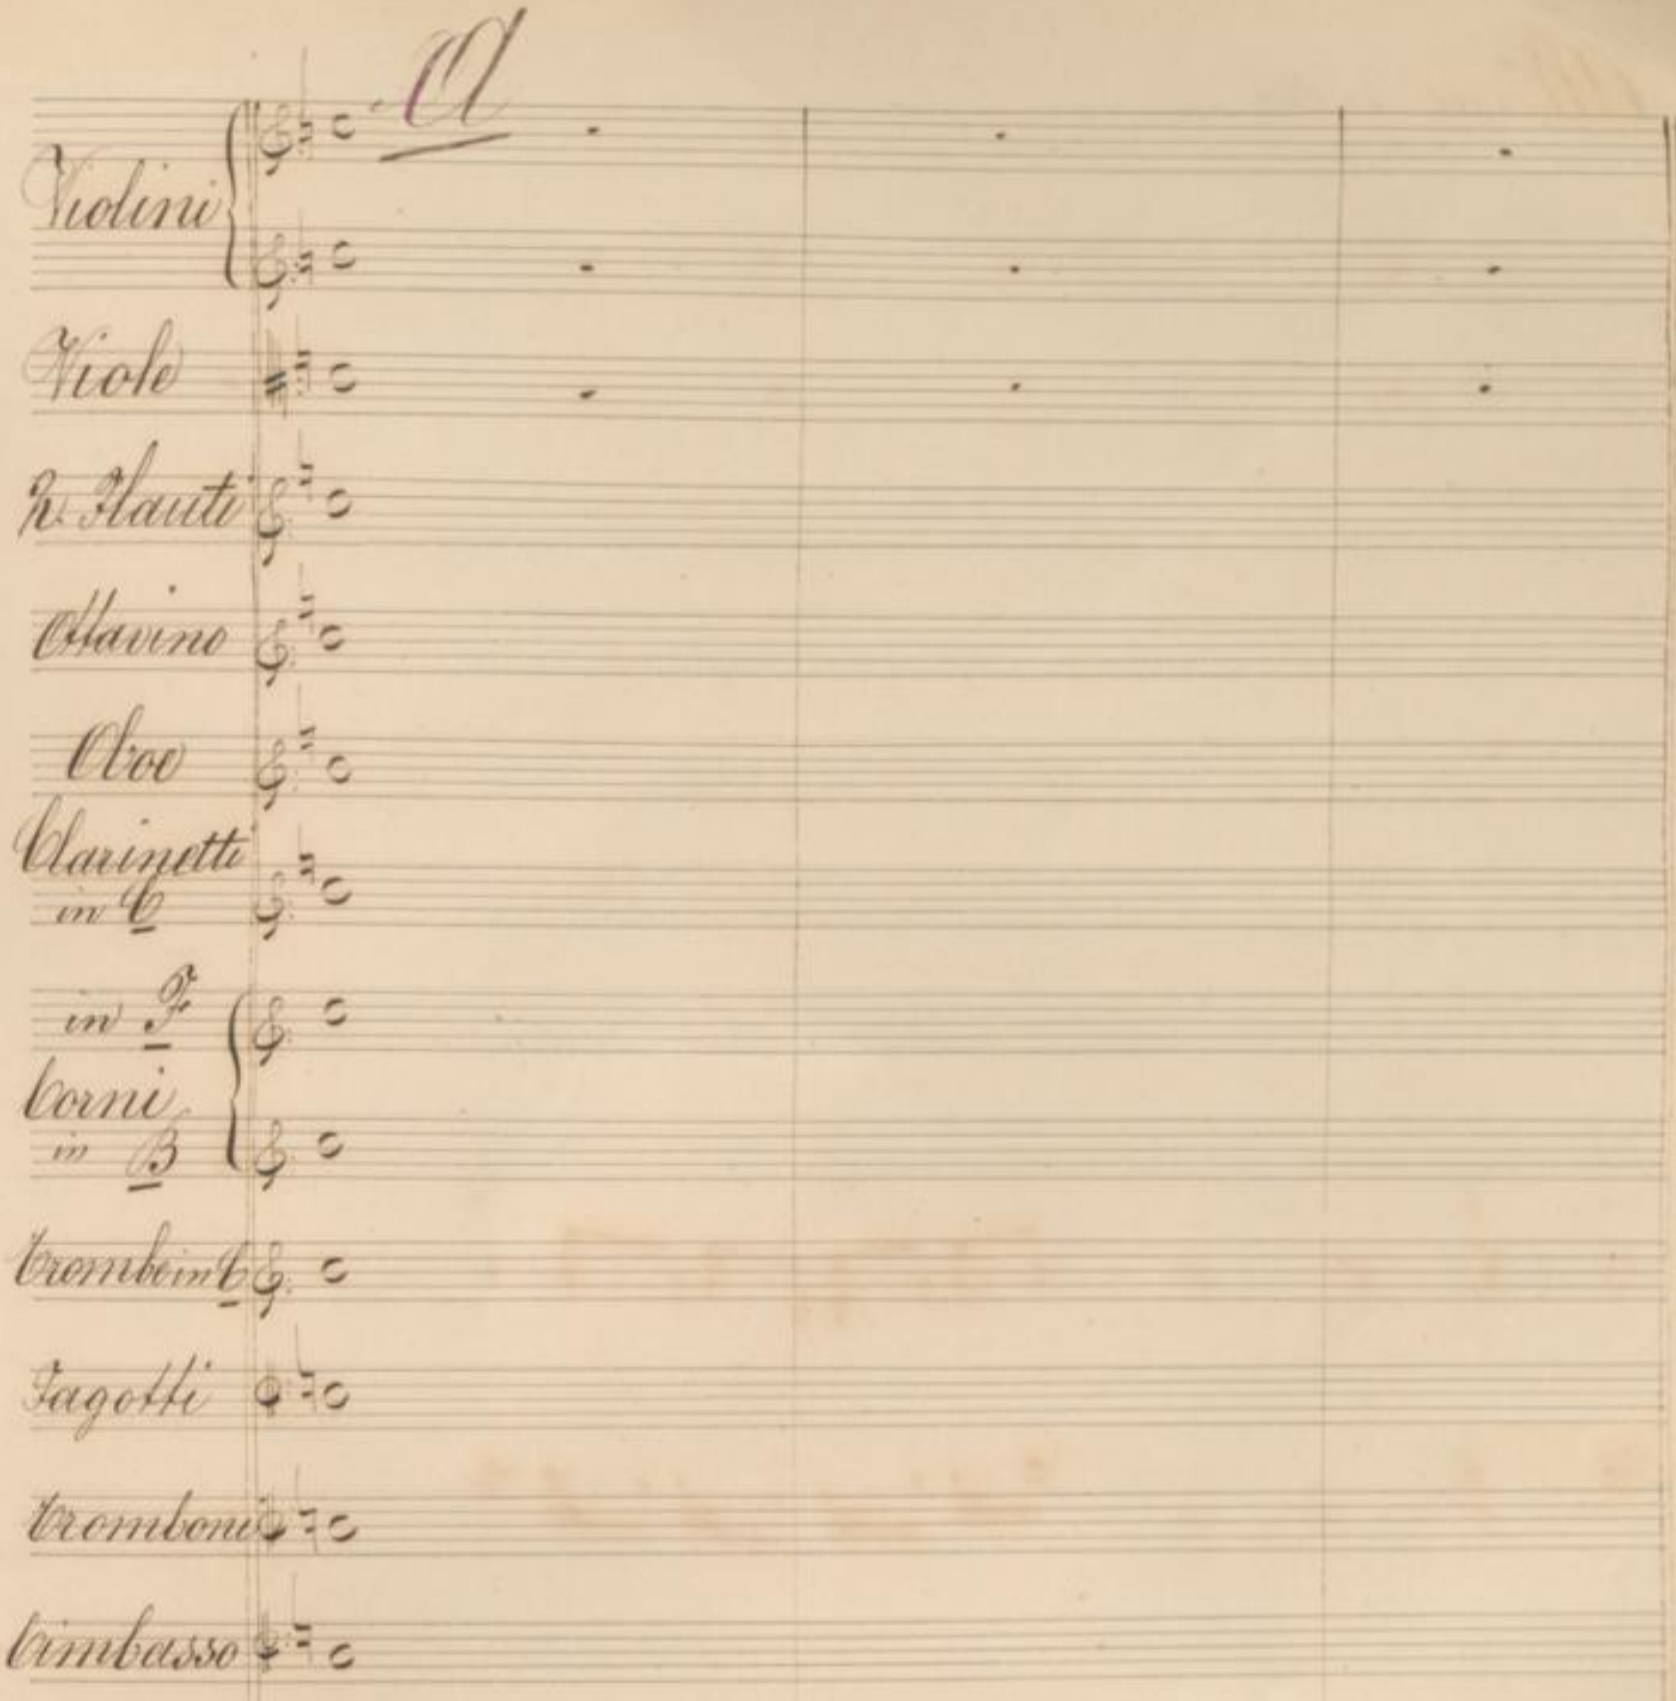 A
Violini
Viole
2. Flauti
Ottavino
Oboe
Clarinetti
in C
in F
Corni
in B
Trombe in C
Fagotti
Tromboni
Cimbasso